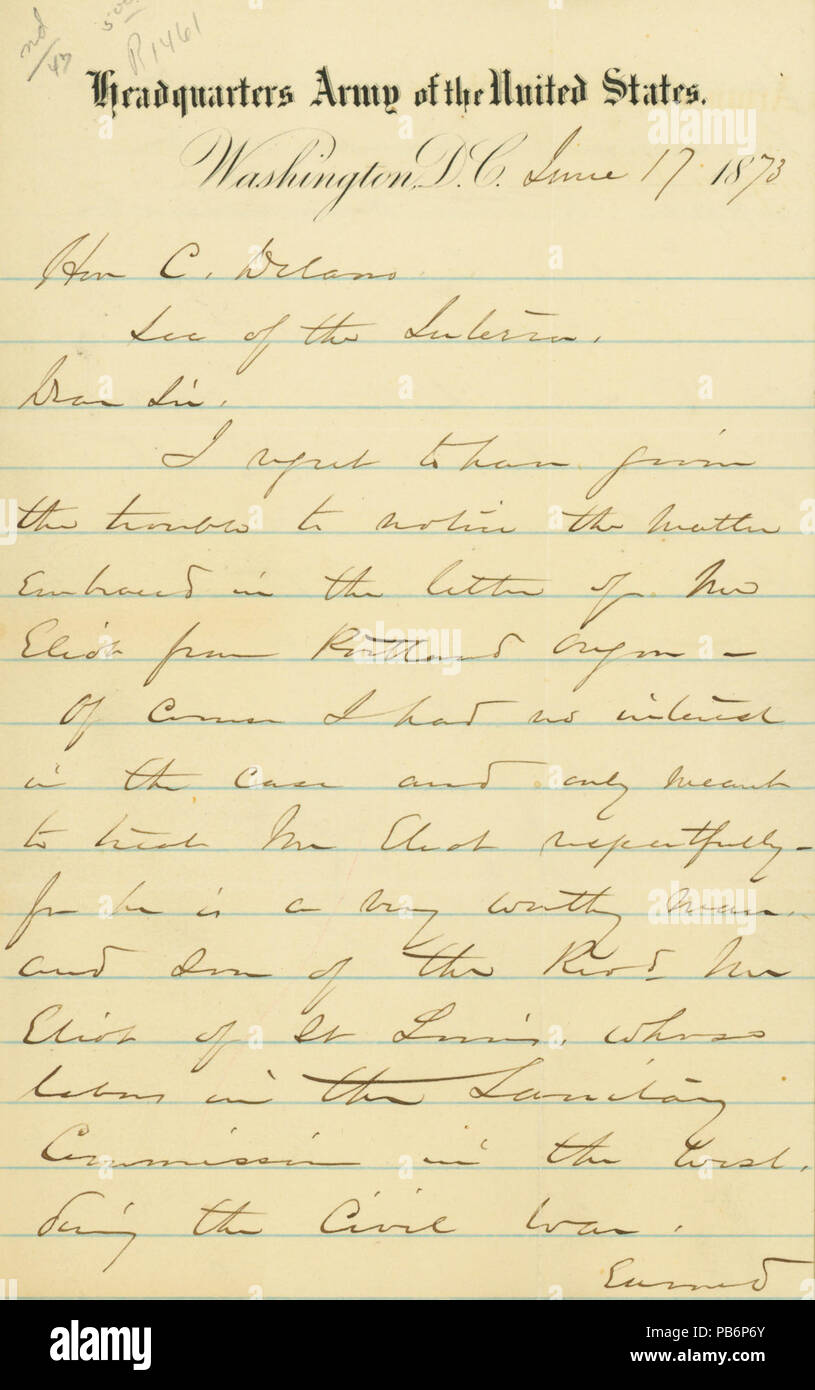 nd
/47
500.
R1461
Headquarters Army of the United States.
Washington, D.C. June 17 1873
Hon C. Delano
Sec of the Interior.
Dear Sir.
I regret to have given
the trouble to notice the matter
embraced in the letter of Mr
Eliot from Portland Oregon —
Of course I had no interest
in the case and only meant
to treat Mr Eliot respectfully —
for he is a very worthy man.
and son of the Revd. Mr
Eliot of St Louis. whose
labors in the Sanitary
Commission in the West.
during the Civil War.
Earned
alamy
alamy
Image ID: PB6P6Y
www.alamy.com